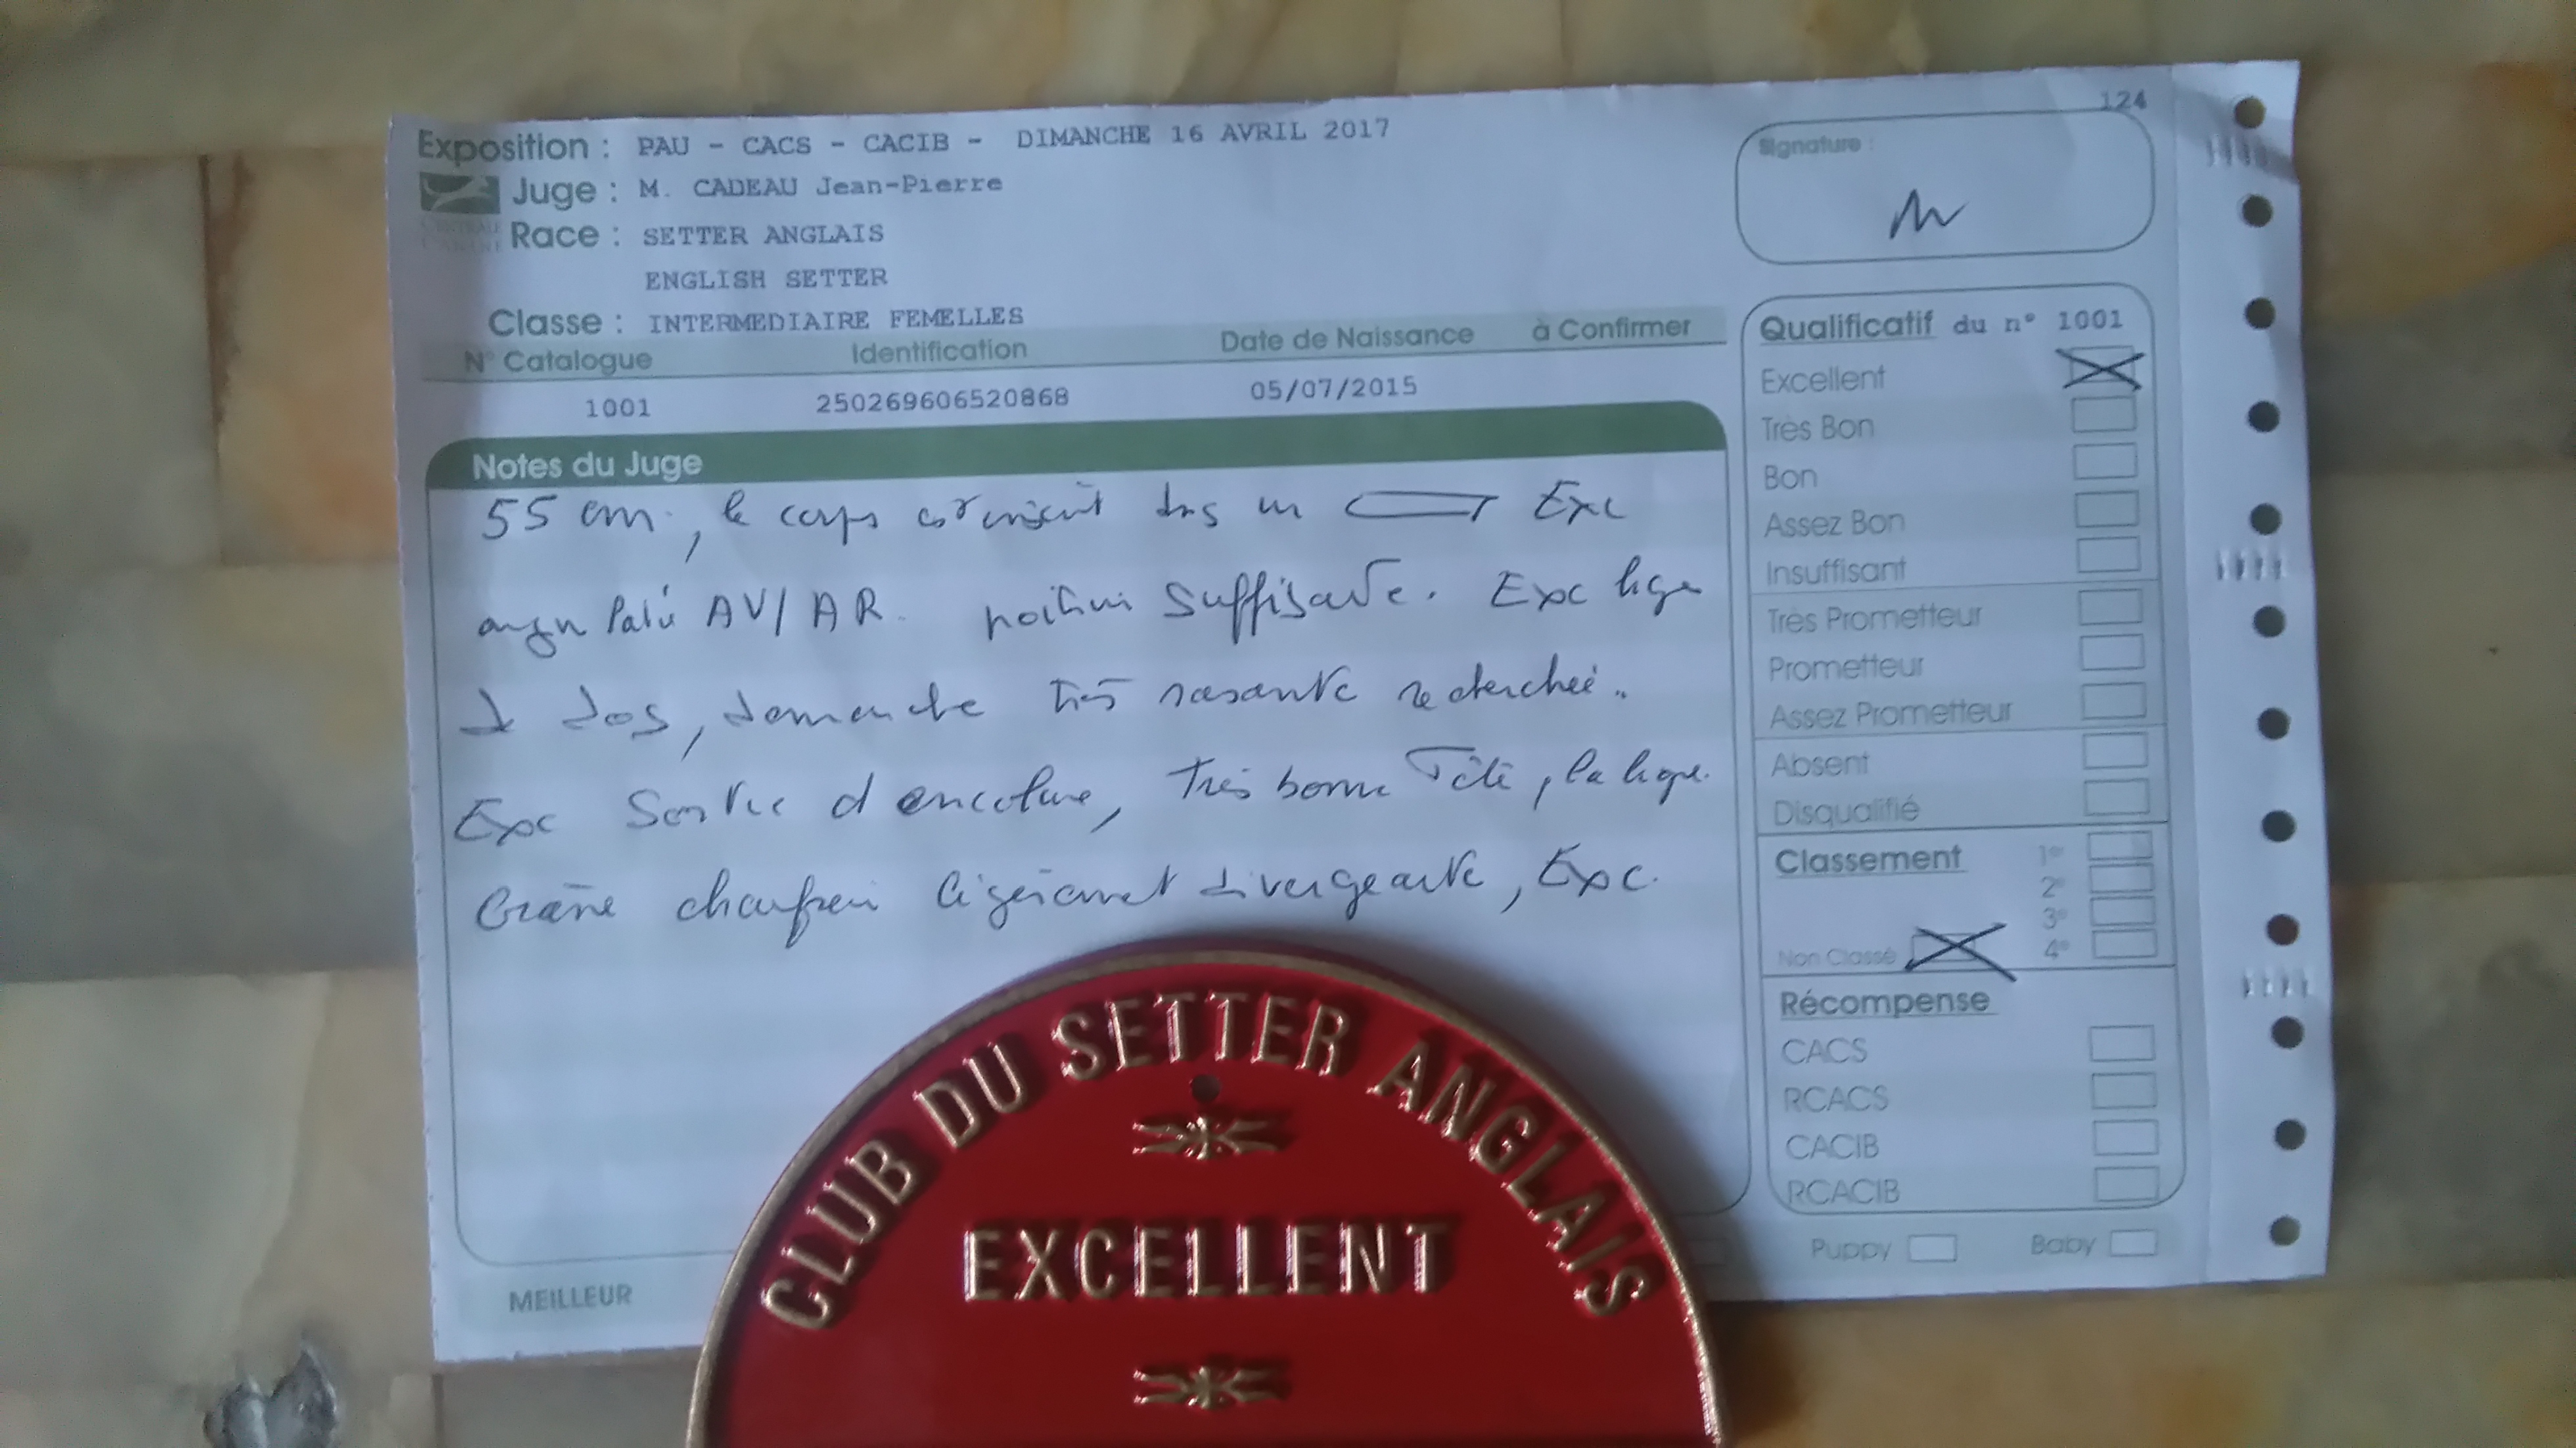 124
Exposition : PAU - CACS - CACIB - DIMANCHE 16 AVRIL 2017
Juge : M. CADEAU Jean-Pierre
Race : SETTER ANGLAIS
ENGLISH SETTER
Classe : INTERMEDIAIRE FEMELLES
N° Catalogue Identification Date de Naissance à Confirmer
1001 250269606520868 05/07/2015
Notes du Juge
55 cm, le corps dans un Exc
AV/AR. poitrine suffisante. Exc ligne
de dos, démarche très rasante recherchée.
Exc Sortie d'encolure, très bonne Tête, la ligne
Crâne chanfrein légèrement divergeante, Exc.
Signature :
Qualificatif du n° 1001
Excellent
Très Bon
Bon
Assez Bon
Insuffisant
Très Prometteur
Prometteur
Assez Prometteur
Absent
Disqualifié
Classement 1er
2e
3e
Non Classé 4e
Récompense
CACS
RCACS
CACIB
RCACIB
MEILLEUR Puppy Baby
CLUB DU SETTER ANGLAIS
EXCELLENT